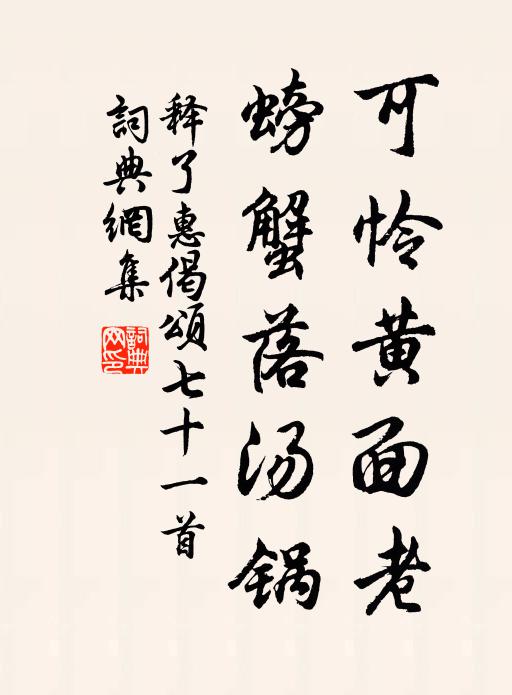 可怜黄面老
螃蟹落汤锅
释了惠偈颂七十一首
詞典網集
詞典网印